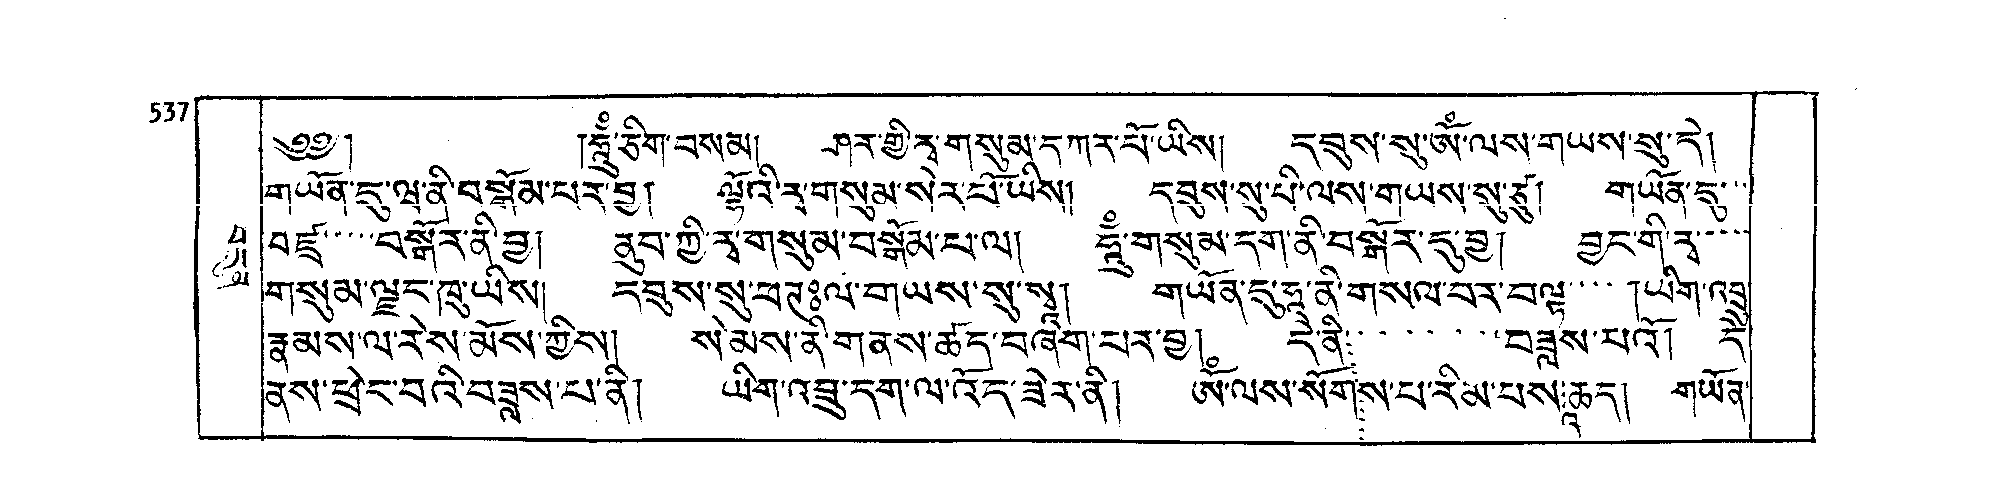 537
༄༅། །ཧཱུྃ་ཅིག་བསམ། ཤར་གྱི་རྭ་གསུམ་དཀར་པོ་ཡིས། དབུས་སུ་ཨོྃ་ལས་གཡས་སུ་དེ།
གཡོན་དུ་ཝ་ནི་བསྒོམ་པར་བྱ། ལྷོའི་རྭ་གསུམ་སེར་པོ་ཡིས། དབུས་སུ་པི་ལས་གཡས་སུ་ཙུ། གཡོན་དུ་
བཛྲ་བསྐོར་ནི་བྱ། ནུབ་ཀྱི་རྭ་གསུམ་བསྒོམ་པ་ལ། ཧཱུྃ་གསུམ་དག་ནི་བསྐོར་དུ་བྱ། བྱང་གི་རྭ་
གསུམ་ལྗང་ཁུ་ཡིས། དབུས་སུ་ཕཊཿལ་གཡས་སུ་སྭཱ། གཡོན་དུ་ཧཱ་ནི་གསལ་བར་བལྟ །ཡིག་འབྲུ
རྣམས་ལ་རེས་མོས་ཀྱིས། སེམས་ནི་གནས་ཚད་བཞག་པར་བྱ། དེ་ནི་བཟླས་པའོ། དེ
ནས་ཕྲེང་བའི་བཟླས་པ་ནི། ཡིག་འབྲུ་དག་ལ་འོད་ཟེར་ནི། ཨོྃ་ལས་སོགས་པ་རིམ་པས་ཆུད། གཡོན་